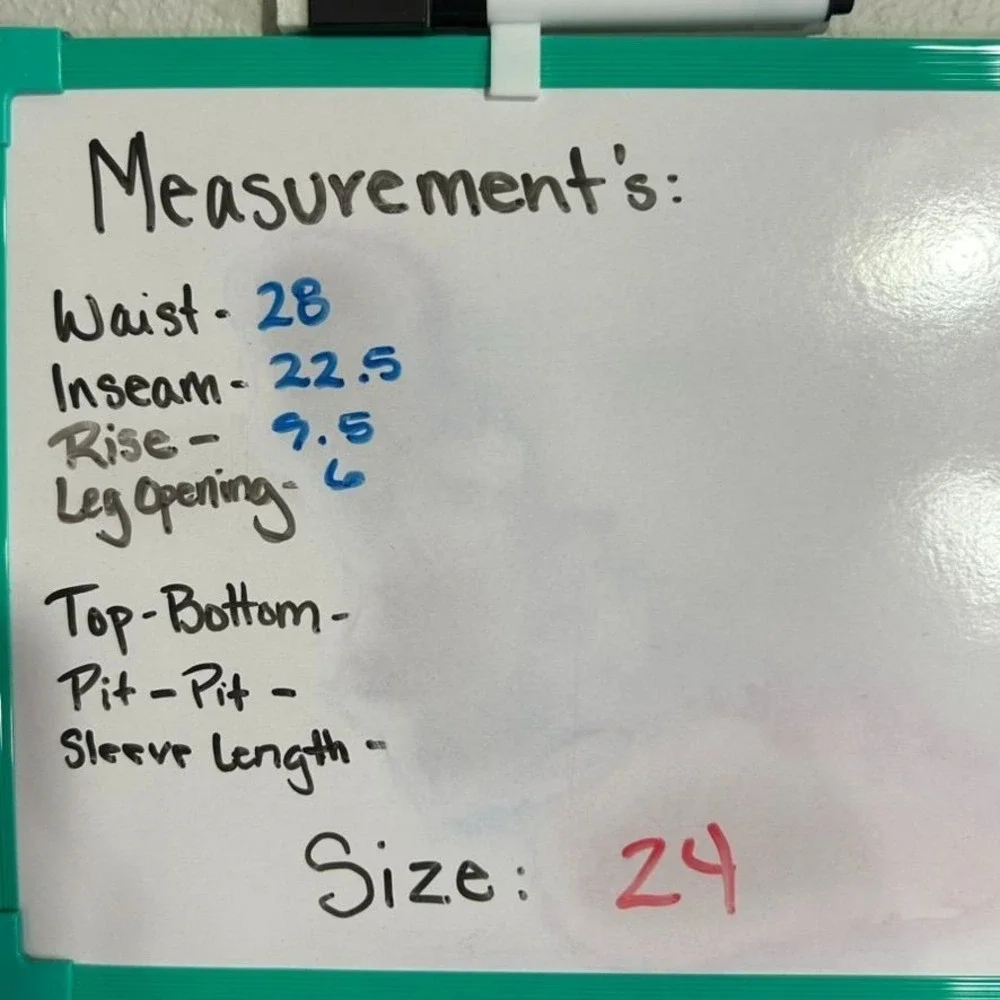 Measurement's:
Waist - 28
Inseam - 22.5
Rise - 9.5
Leg Opening - 6
Top-Bottom -
Pit-Pit -
Sleeve Length -
Size: 24